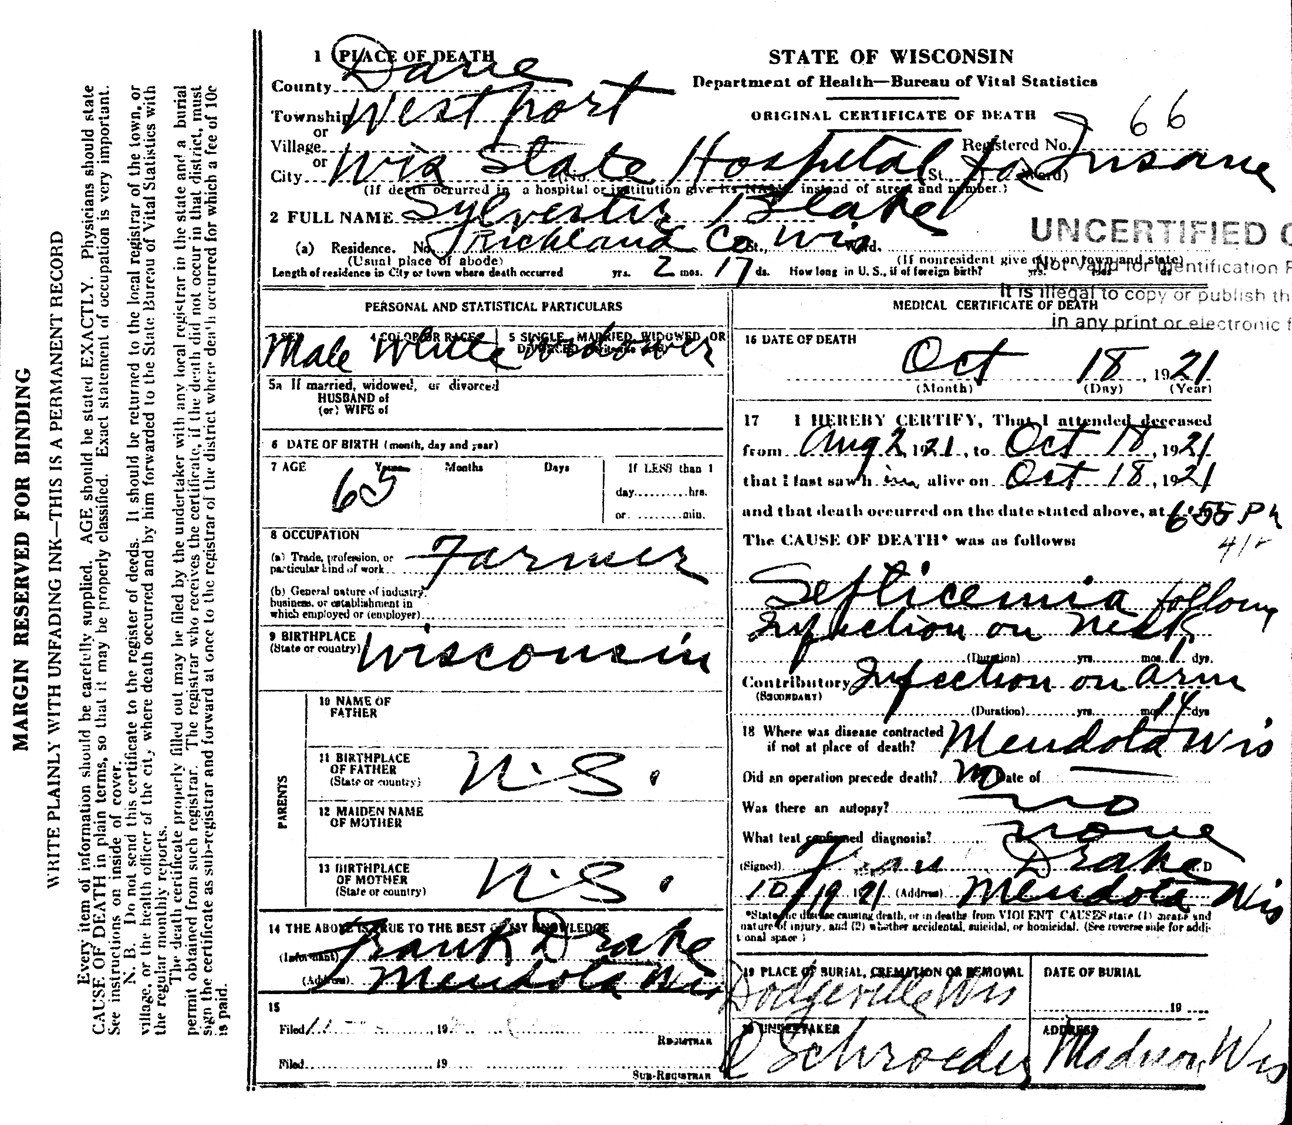 MARGIN RESERVED FOR BINDING
WRITE PLAINLY WITH UNFADING INK—THIS IS A PERMANENT RECORD
Every item of information should be carefully supplied. AGE should be stated EXACTLY. Physicians should state
CAUSE OF DEATH in plain terms, so that it may be properly classified. Exact statement of occupation is very important.
See instructions on inside of cover.
N. B. Do not send this certificate to the register of deeds. It should be returned to the local registrar of the town, or
village, or the health officer of the city, where death occurred and by him forwarded to the State Bureau of Vital Statistics with
the regular monthly reports.
The death certificate properly filled out may be filed by the undertaker with any local registrar in the state and a burial
permit obtained from such registrar. The registrar who receives the certificate, if the death did not occur in that district, must
sign the certificate as sub-registrar and forward at once to the registrar of the district where death occurred for which a fee of 10c
is paid.
1 PLACE OF DEATH
County Dane
Township Westport
or
Village
or
City Wis State Hospital for Insane
(No. St., Ward)
(If death occurred in a hospital or institution give its NAME instead of street and number.)
STATE OF WISCONSIN
Department of Health—Bureau of Vital Statistics
ORIGINAL CERTIFICATE OF DEATH
Registered No. 66
2 FULL NAME Sylvester Blake
(a) Residence. No. Richland Co St., Wis Ward.
(Usual place of abode) (If nonresident give city or town and state)
Length of residence in City or town where death occurred yrs. 2 mos. 17 ds. How long in U. S., if of foreign birth? yrs.
UNCERTIFIED C
Not valid for identification P
It is illegal to copy or publish th
in any print or electronic f
PERSONAL AND STATISTICAL PARTICULARS
3 SEX Male
4 COLOR OR RACE White
5 SINGLE, MARRIED, WIDOWED, OR DIVORCED Widower
5a If married, widowed, or divorced
HUSBAND of
(or) WIFE of
6 DATE OF BIRTH (month, day and year)
7 AGE Years Months Days If LESS than 1
65 day......hrs.
or......min.
8 OCCUPATION
(a) Trade, profession, or
particular kind of work Farmer
(b) General nature of industry,
business, or establishment in
which employed or (employer)
9 BIRTHPLACE
(State or country) Wisconsin
PARENTS
10 NAME OF
FATHER
11 BIRTHPLACE
OF FATHER N.S.
(State or country)
12 MAIDEN NAME
OF MOTHER
13 BIRTHPLACE
OF MOTHER N.S.
(State or country)
14 THE ABOVE IS TRUE TO THE BEST OF MY KNOWLEDGE
(Informant) Frank Drake
(Address) Mendota Wis
15
Filed 19
REGISTRAR
Filed 19
SUB-REGISTRAR
MEDICAL CERTIFICATE OF DEATH
16 DATE OF DEATH
Oct 18, 1921
(Month) (Day) (Year)
17 I HEREBY CERTIFY, That I attended deceased
from Aug 2, 1921, to Oct 18, 1921
that I last saw him alive on Oct 18, 1921
and that death occurred on the date stated above, at 6:55 P
The CAUSE OF DEATH* was as follows:
Septicemia following
Infection on neck
(Duration) yrs. mos. dys.
Contributory Infection on arm
(SECONDARY)
(Duration) yrs. mos. 14 dys
18 Where was disease contracted
if not at place of death? Mendota Wis
Did an operation precede death? no Date of
Was there an autopsy? no
What test confirmed diagnosis? none
(Signed) Drake
10/19 1921 (Address) Mendota Wis
*State the disease causing death, or in deaths from VIOLENT CAUSES state (1) means and
nature of injury, and (2) whether accidental, suicidal, or homicidal. (See reverse side for addi-
tional space)
19 PLACE OF BURIAL, CREMATION OR REMOVAL DATE OF BURIAL
Dodgeville Wis 19
20 UNDERTAKER ADDRESS
Schroeder Madison Wis